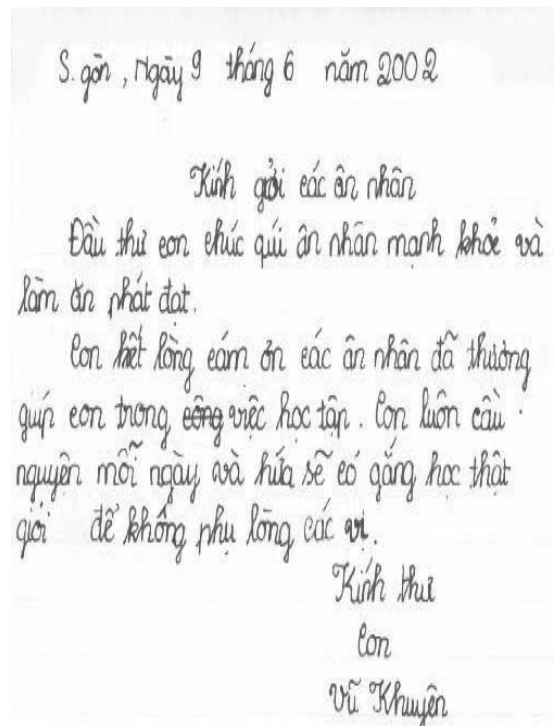 S. gòn, Ngày 9 tháng 6 năm 2002
Kính gởi các ân nhân
Đầu thư con chúc quí ân nhân mạnh khỏe và
làm ăn phát đạt.
Con hết lòng cám ơn các ân nhân đã thương
giúp con trong công việc học tập. Con luôn cầu
nguyện mỗi ngày và hứa sẽ cố gắng học thật
giỏi để không phụ lòng các vị.
Kính thư
Con
Vũ Khuyên